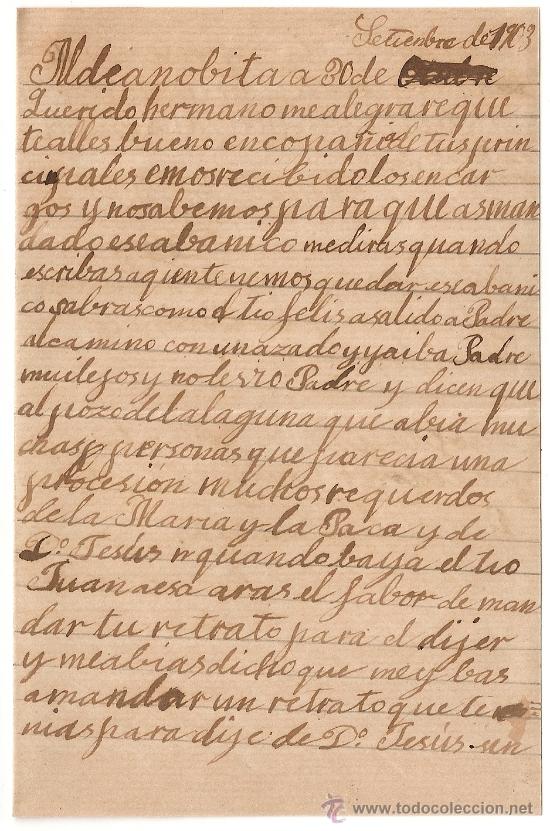 Setienbre de 1903
Aldeanobita a 30 de
Querido hermano mealegrareque
tealles bueno encopañodetusprin
cipales emosrecibidolosencar
gos y nosabemosparaqueasman
dadoeseabanico mediras quando
escribas aqientenemosquedar eseabani
co sabrascomo el tio felis asalido a Padre
alcamino con unazadoyyaiba Padre
muilejos y no Padre y dicen que
al pozodelalaguna que abia mu
chas personas que parecia una
procesión muchosrequerdos
de la Maria y la Paca y de
Dº Jesús quandobaya el tio
Juanaesa aras el fabor de man
dar tu retrato para el dijer
y meabiasdichoque meybas
amandar un retratoquete
niasparadije de Dº Jesús un
www.todocoleccion.net